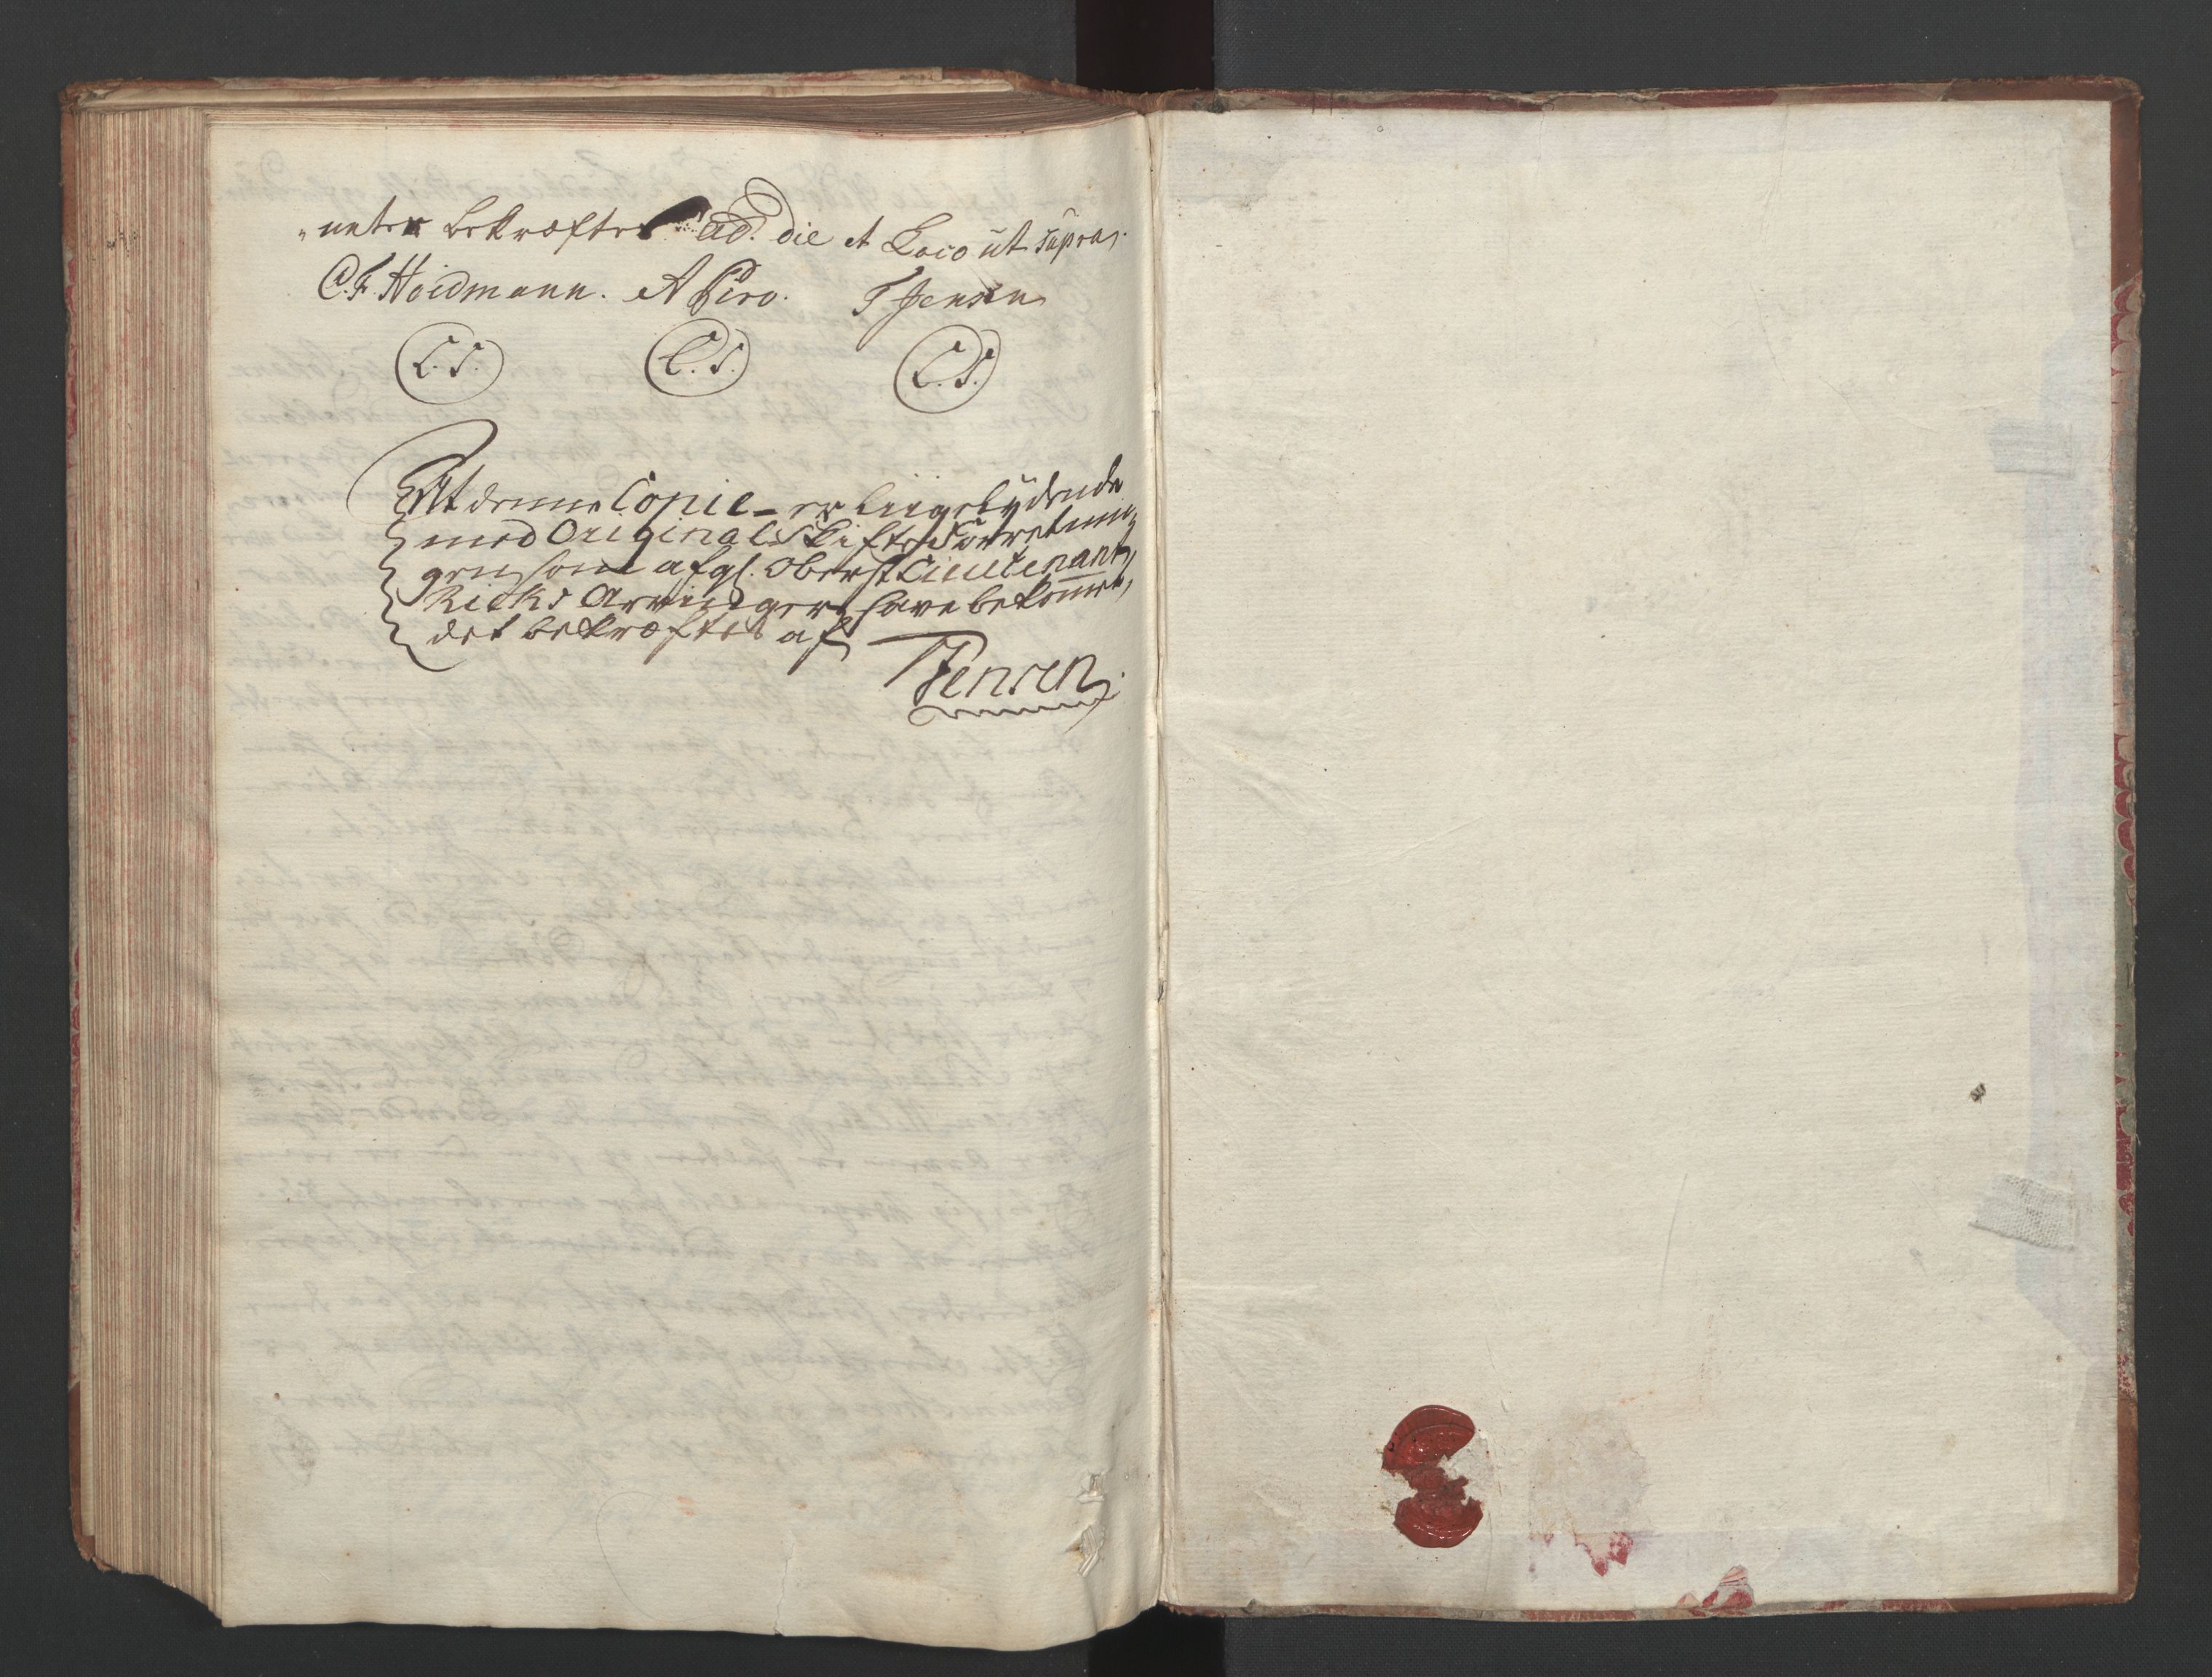 "neter bekræftes ad. die et Loco ut supra.
C. F. Hoidmann. A Piro. T Jensen
L. S. L. S. L. S.
At denne Copie er liigelydende
med Original Skifte Forretnin„
gen som afgl. Oberst Lieutenant
Rieks Arvinger have bekomet,
det bekræftes af
TJensen.